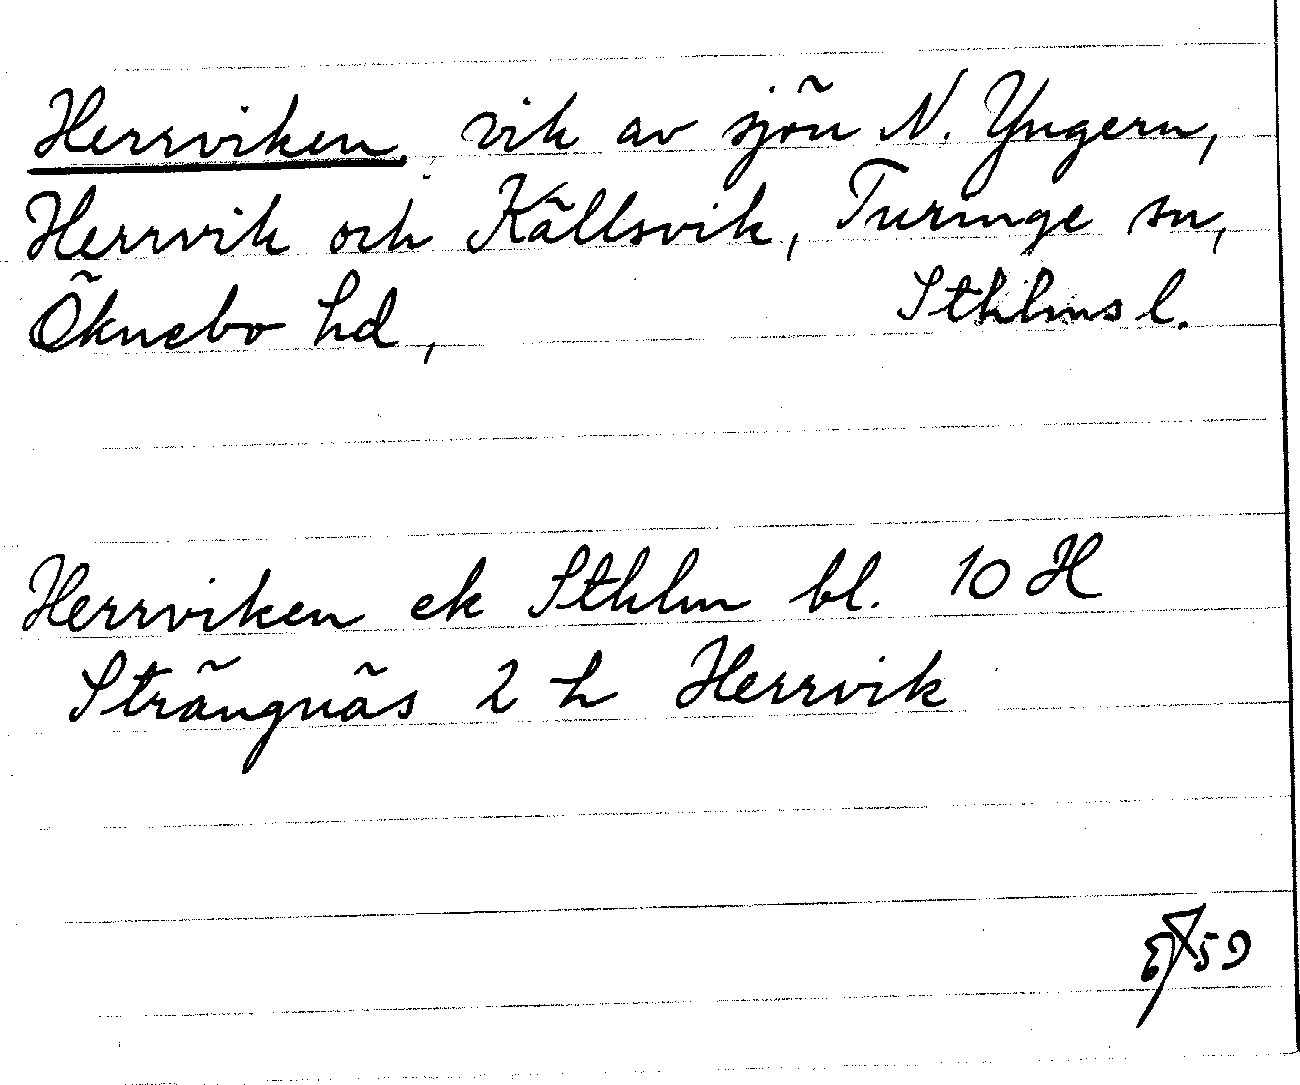 Herrviken, vik av sjön N. Yngern,
Herrvik och Källsvik, Turinge sn,
Öknebo hd, Sthlms l.
Herrviken ek Sthlm bl. 10 H
Strängnäs 2 h Herrvik
59